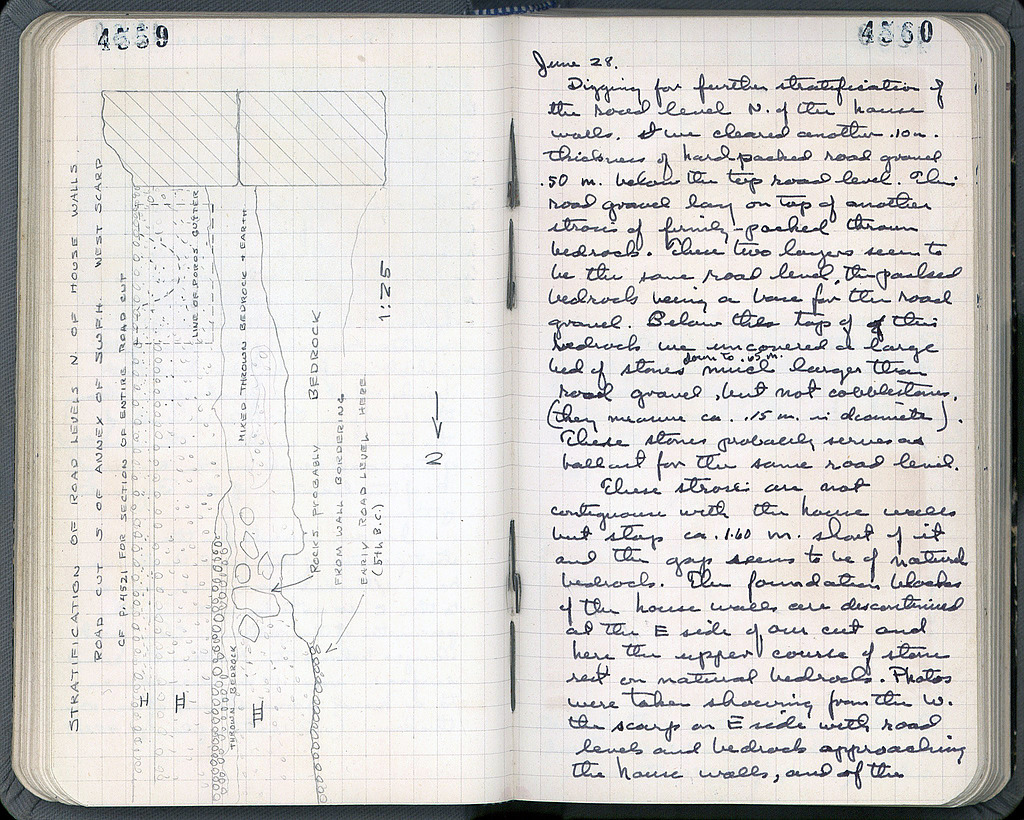 4559
STRATIFICATION OF ROAD LEVELS N OF HOUSE WALLS
ROAD CUT S OF ANNEX OF SWPH WEST SCARP
CF P. 4521 FOR SECTION OF ENTIRE ROAD CUT
I
II
LINE OF POROS GUTTER
THROWN BEDROCK
MIXED THROWN BEDROCK + EARTH
III
ROCKS PROBABLY
FROM WALL BORDERING
EARLY ROAD LEVEL HERE
(5th B.C.)
BEDROCK
1:25
N
4560
June 28.
Digging for further stratification of
the road level N. of the house
walls. we cleared another .10 m.
thickness of hard-packed road gravel
.50 m. below the top road level. This
road gravel lay on top of another
strosis of firmly-packed thrown
bedrock. These two layers seem to
be the same road level, the packed
bedrock being a base for the road
gravel. Below the top of this
bedrock we uncovered a large
bed of stones down to .65 m. much larger than
road gravel, but not cobblestones.
(they measure ca. .15 m. in diameter).
These stones probably serve as
ballast for the same road level.
These stroses are not
contiguous with the house walls
but stop ca. 1.60 m. short of it
and the gap seems to be of natural
bedrock. The foundation blocks
of the house walls are discontinued
at the E side of our cut and
here the upper course of stone
rest on natural bedrock. Photos
were taken showing from the W.
the scarp on E side with road
levels and bedrock approaching
the house walls, and of the